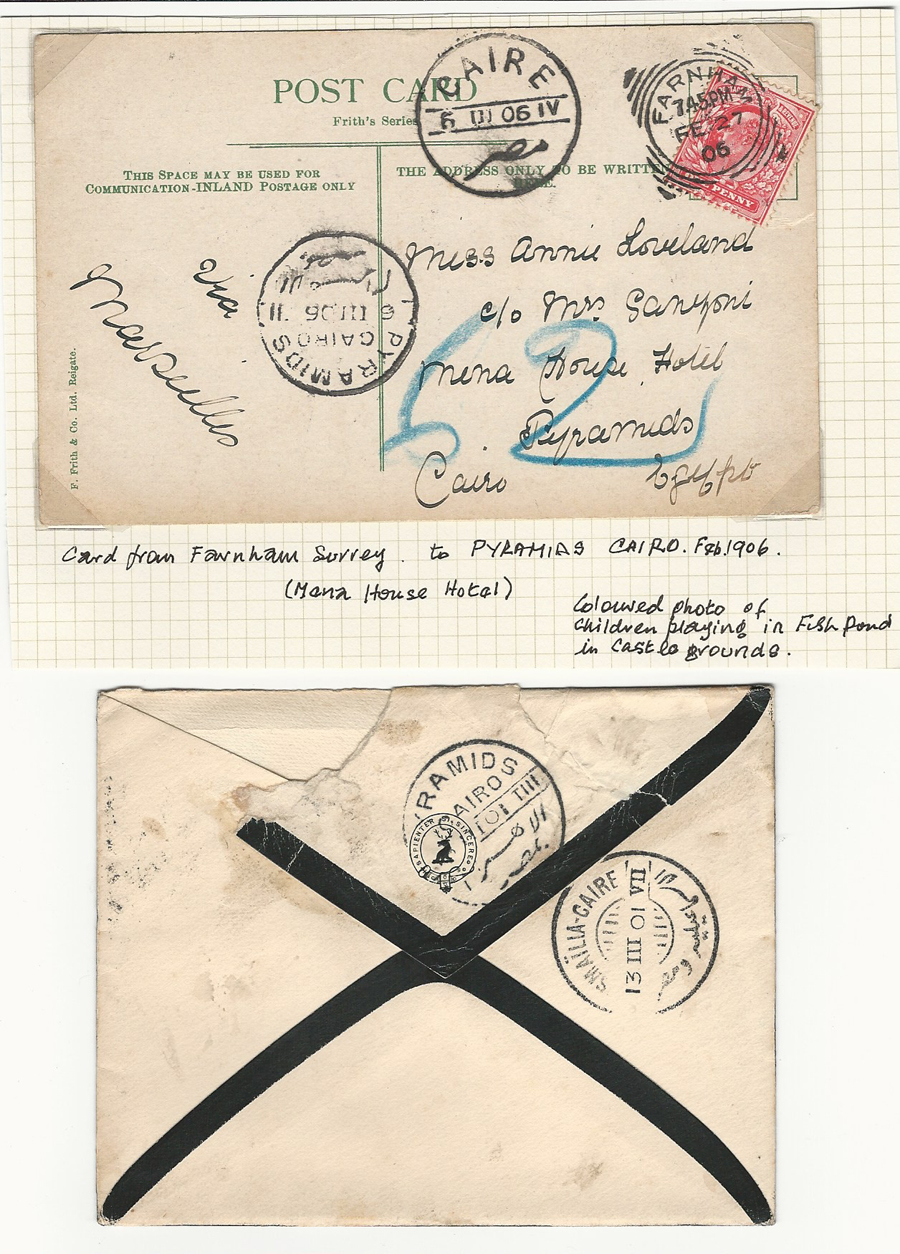 POST CARD
Frith's Series
THIS SPACE MAY BE USED FOR
COMMUNICATION-INLAND POSTAGE ONLY
THE ADDRESS ONLY TO BE WRITTEN
HERE.
CAIRE
6 III 06 IV
مصر
FARNHAM
7.45PM
FE 27
06
PENNY
Via
Marseilles
PYRAMIDS
CAIROS
III 06
Miss Annie Loveland
c/o Mrs
Mena House Hotel
Pyramids
Cairo Egypt
F. Frith & Co. Ltd. Reigate.
Card from Farnham Surrey. to PYRAMIDS CAIRO. Feb. 1906.
(Mena House Hotel)
Coloured photo of
children playing in Fish pond
in Castle grounds.
RAMIDS
AIRO
SAPIENTER SI SINCERE
SMAÏLIA-CAIRE
13 III 01 VII